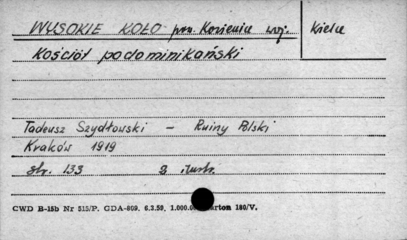 WYSOKIE KOŁO pow. Kozienice woj. Kielce
Kościół podominikański
Tadeusz Szydłowski - Ruiny Polski
Kraków 1919
str. 133 2 ilustr.
CWD B-15b Nr 515/P. GDA-809. 6.3.59. 1.000.0 arton 180/V.